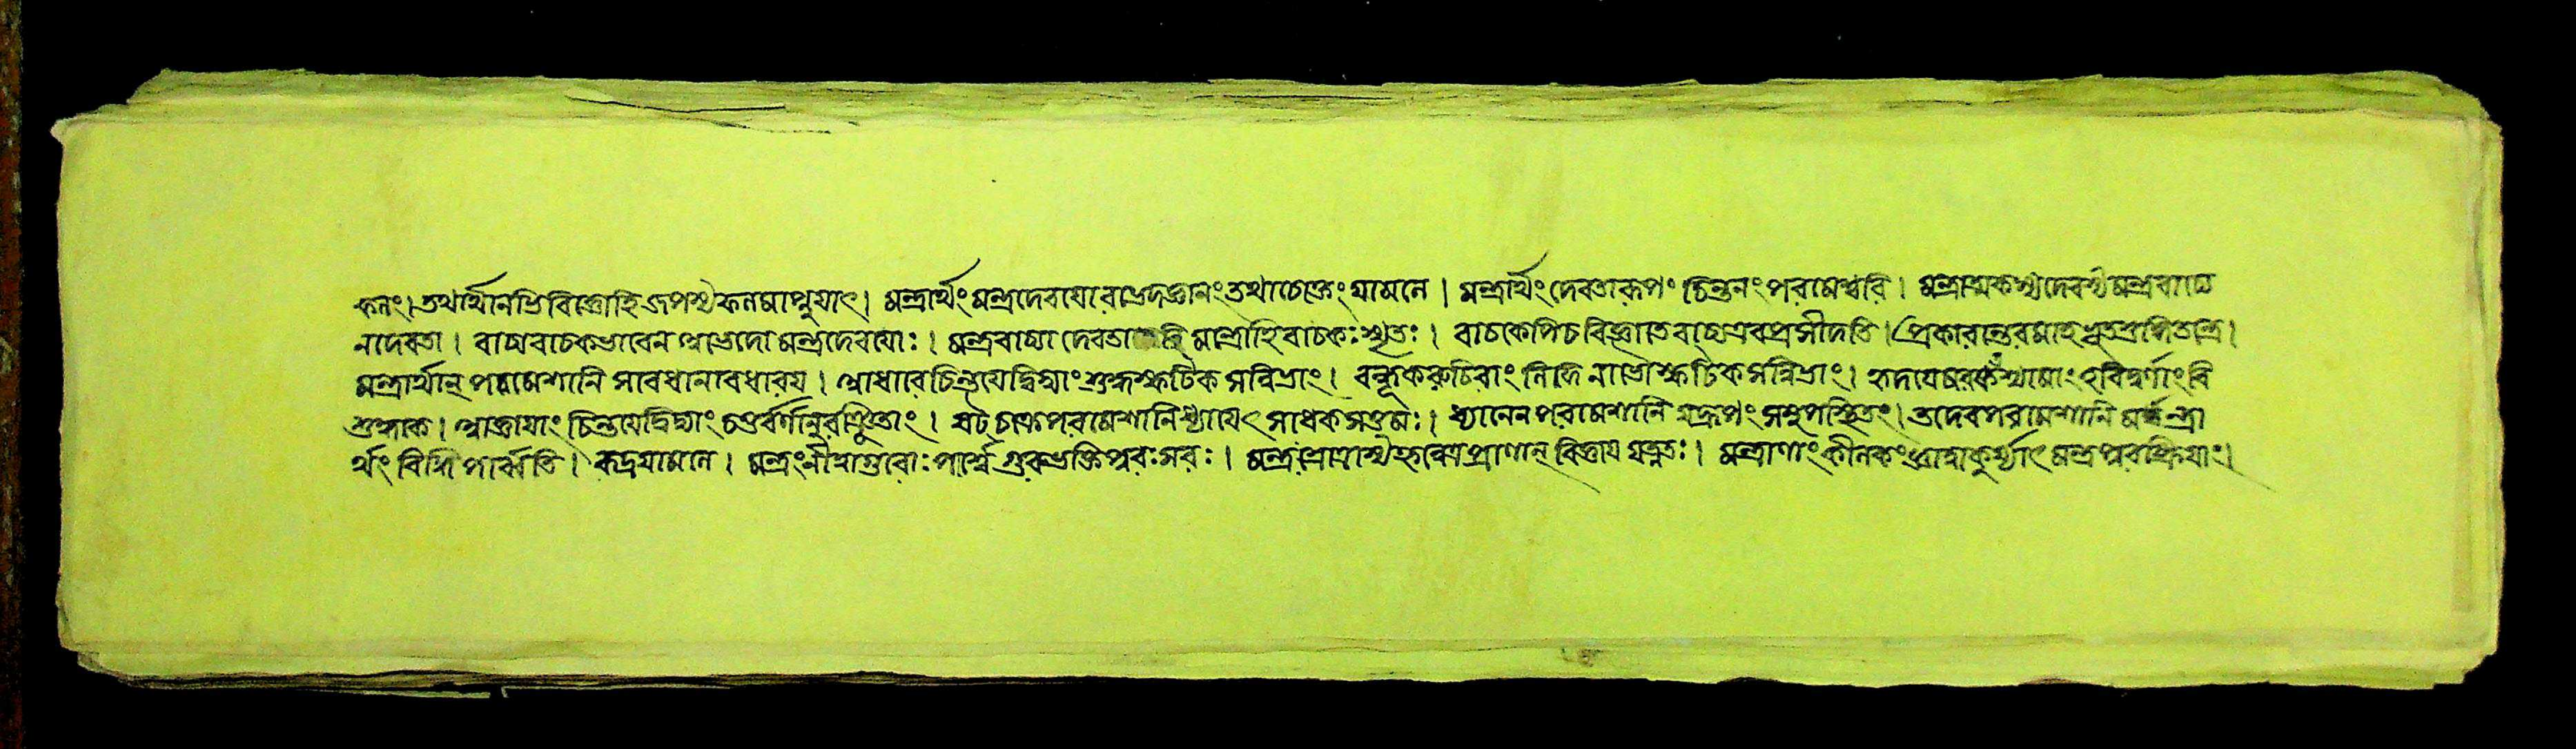 ফলং। তথার্থানভিবিজ্ঞোহি জপস্য ফলমাপ্নুয়াৎ। মন্ত্রার্থং মন্ত্রদেবয়োরভেদজ্ঞানং তথাচোক্তং যামলে। মন্ত্রার্থং দেবতারূপং চিন্তনং পরমেশ্বরি। মন্ত্রাত্মকস্য দেবস্য মন্ত্রবাচ্যে
ন দেবতা। বাচ্যবাচকভাবেন অভেদো মন্ত্রদেবয়োঃ। মন্ত্রবাচ্যা দেবতা মন্ত্রোহি বাচকঃ স্মৃতঃ। বাচকেপিচ বিজ্ঞাতে বাচ্য এব প্রসীদতি। প্রকারান্তরমাহ তন্ত্রে।
মন্ত্রার্থান্ পরমেশানি সাবধানাবধারয়। আধারে চিন্তয়েদ্বিদ্যাং শুদ্ধস্ফটিক সন্নিভাং। বন্ধূকরুচিরাং লিঙ্গে নাভৌ স্ফটিকসন্নিভাং। হৃদয়ে মরকত শ্যামাং হবিদ্বর্ণাং বি
শুদ্ধকে। আজ্ঞায়াং চিন্তয়েদ্বিদ্যাং চতুর্বর্ণানুরঞ্জিতাং। ষট্ চক্রে পরমেশানি ধ্যায়েৎ সাধকসত্তমঃ। ধ্যানেন পরমেশানি যদ্রূপং সমুপস্থিতং। তদেব পরমেশানি মন্ত্রা
র্থং বিদ্ধি পার্ব্বতি। রুদ্রযামলে। মন্ত্রং গুরোঃ পার্শ্বে গুরুভক্তিপুরঃসরঃ। মন্ত্রং প্রাণান্ বিজ্ঞায় যত্নতঃ। মন্ত্রাণাং কীলকং কুর্য্যাৎ মন্ত্রপুরস্ক্রিয়াং।